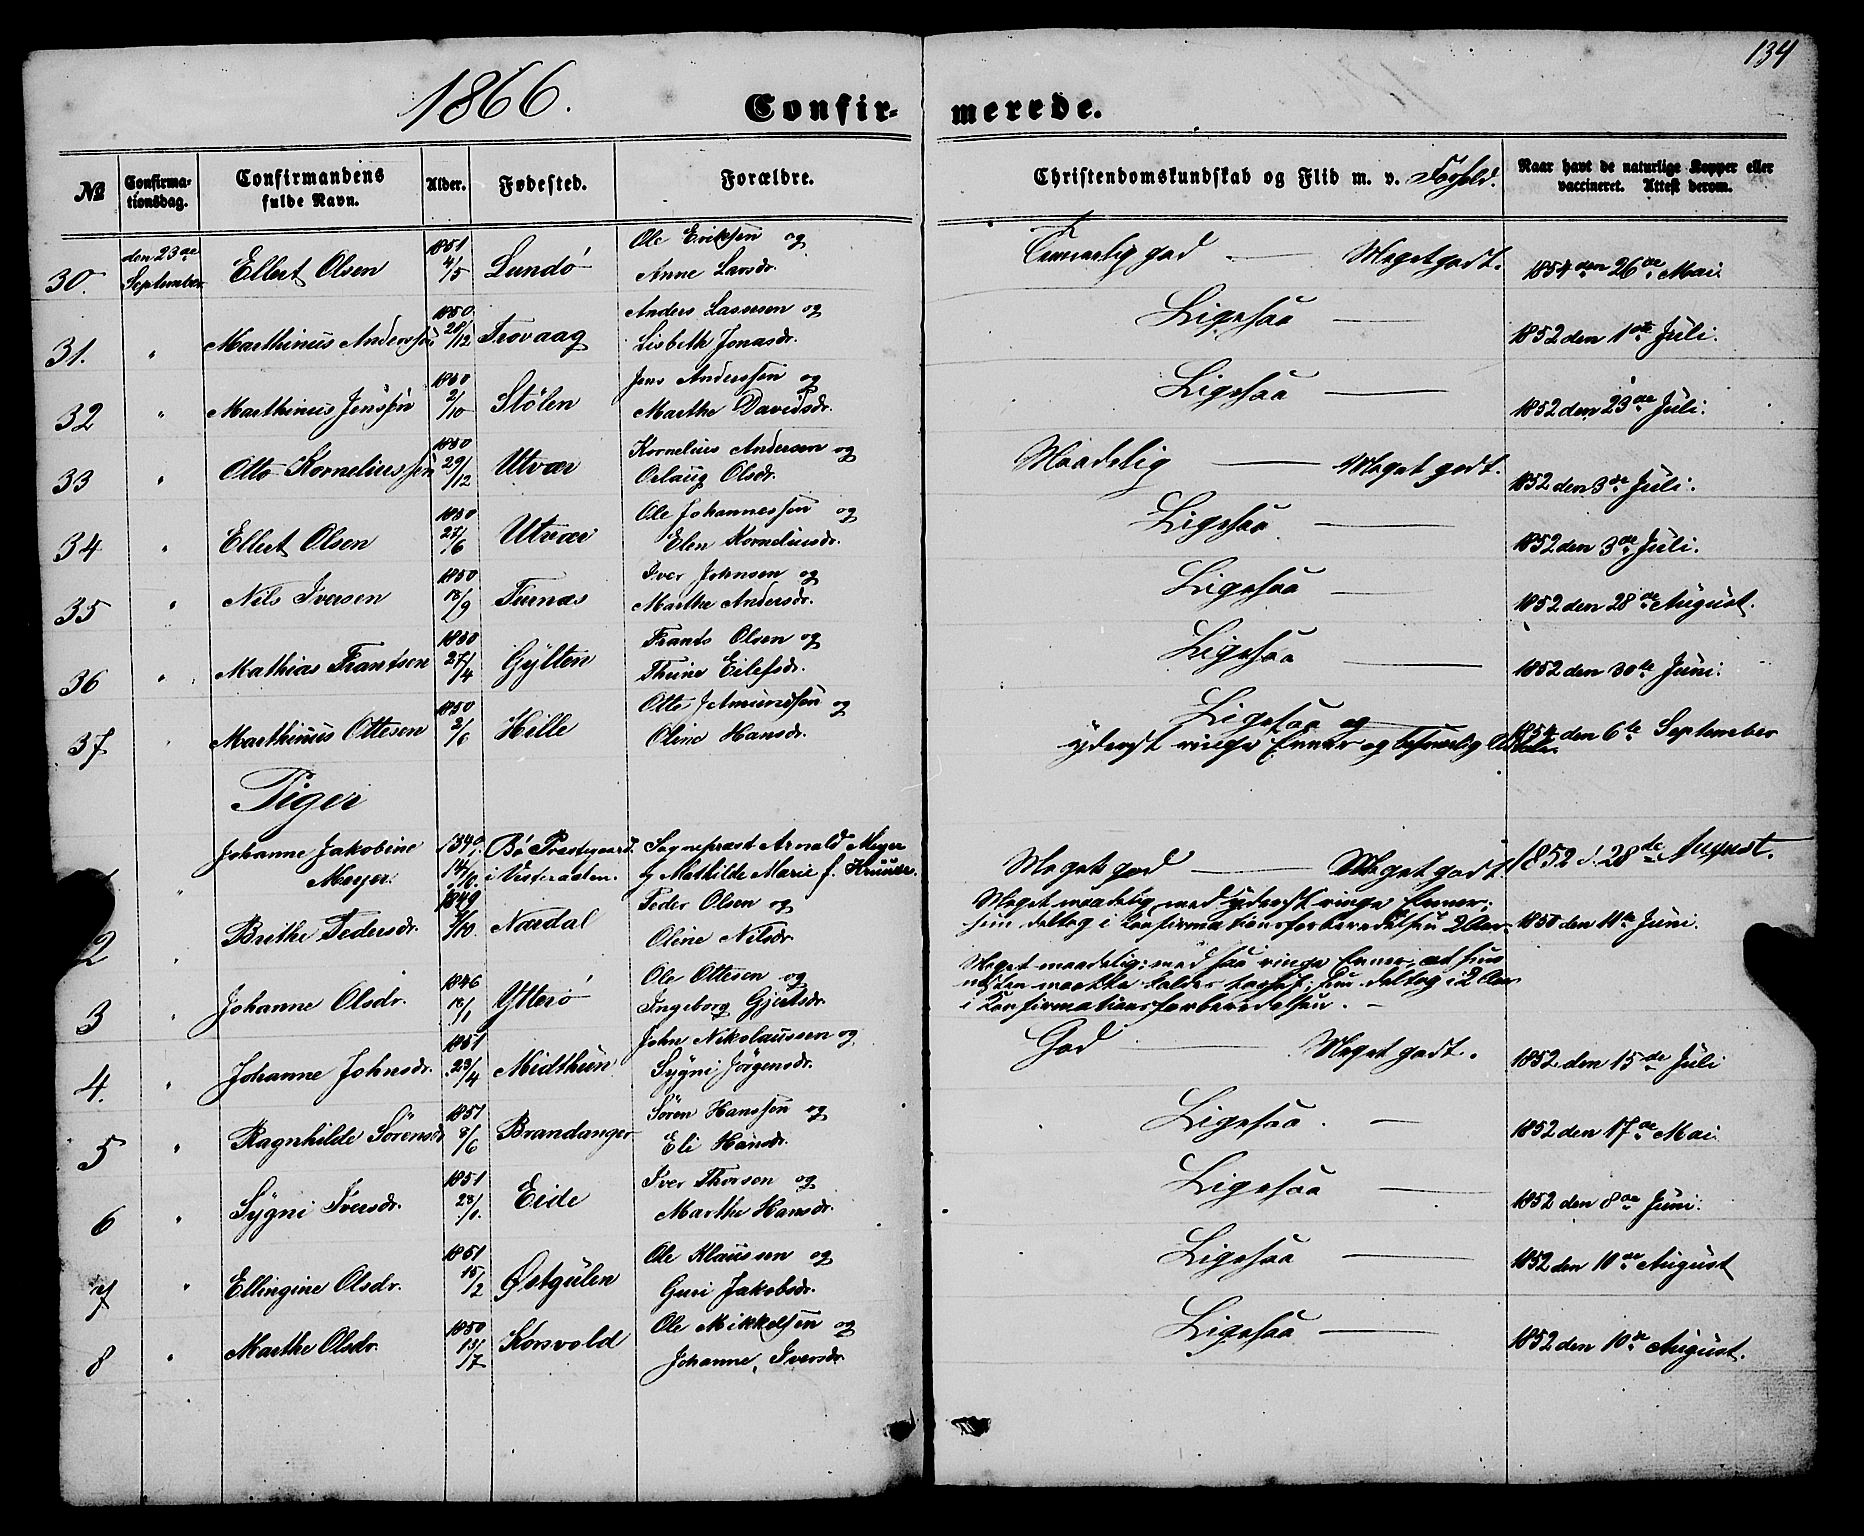 134
1866. Confir- merede.
№ Confirma-tionsdag. Confirmandens fulde Navn. Alder. Fødested. Forældre. Christendomskundskab og Flid m. v. Forhold. Naar havt de naturlige Kopper eller vaccineret. Attest derom.
30. den 23de September Ellert Olsen 1851 4/5 Lundö Ole Eriksen og Anne Larsdr. Temmelig god — Meget godt. 1854 den 26de Mai
31. " Marthinus Anderssen 1850 28/12 Trovaag Anders Lassesen og Lisbeth Jonasdr. Ligesaa — 1852 den 1ste Juli.
32 " Marthinus Jenssen 1850 2/10 Stölen Jens Anderssen og Marthe Davidsdr. Ligesaa — 1852 den 23de Juli.
33 " Otto Korneliussen 1850 29/12 Utvær Kornelius Andersen og Oslaug Olsdr. Maadelig — Meget godt. 1852 den 3de Juli.
34 " Ellert Olsen 1850 27/6 Utvær Ole Johannessen og Elen Korneliusdr. Ligesaa — 1852 den 3de Juli.
35 " Nils Iversen 1850 18/9 Furnæs Iver Johnsen og Marthe Andersdr. Ligesaa — 1852 den 28de August.
36 " Mathias Frantsen 1850 27/4 Gylten Frants Olsen og Thrine Eilefsdr. Ligesaa — 1852 den 30te Juni.
37 " Marthinus Ottesen 1850 2/6 Hille Otte Amundsen og Oline Hansdr. Ligesaa og
yderst ringe Evner og 1854 den 6te September
Piger
" Johanne Jakobine Meyer. 14/10. Bö Præstegaard i Vesteraalen. Sogneprest Arnold Meyer og Mathilde Marie f. Meget god — Meget godt. 1852 d. 28de August.
2 " Brithe Pedersdr. 1849 /10. Nordal Peder Olsen og Oline Nilsdr. Meget maadelig, med yderst ringe Evner;
hun deltog i Konfirmationsforberedelsen 2 Aar. 1850 den 11te Juni.
3 " Johanne Olsdr. 1846 18/1 Ytterö Ole Ottesen og Ingeborg Gjertsdr. Meget maadelig; med saa ringe Evner, at hun
næsten maatte kaldes ; hun deltog i 2 Aar
i Konfirmationsforberedelsen. —
4. " Johanne Johnsdr. 1851 23/4 Midthun John Nikolaussen og Sygni Jörgensdr. God — Meget godt. 1852 den 15de Juli
5 " Ragnhilde Sörensdr 1851 8/6 Brandanger Sören Hanssen og Eli Hansdr. Ligesaa. — 1852 den 17de Mai
6 " Sygni Iversdr. 1851 28/1. Eide Iver Thorson og Marthe Hansdr. Ligesaa — 1852 den 8de Juni.
7 " Ellingine Olsdr. 1851 15/2 Østgulen Ole Klaussen og Guri Jakobsdr. Ligesaa — 1852 den 10de August
8 " Marthe Olsdr. 1850 13/7 Korsvold Ole Mikkelsen og Johanne Iversdr. Ligesaa — 1852 den 10de August.